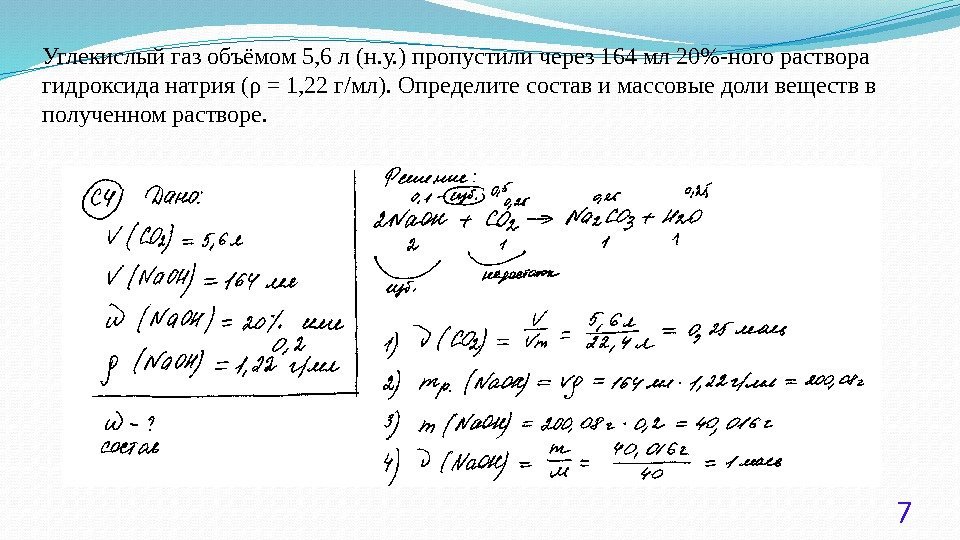 Углекислый газ объёмом 5,6 л (н.у.) пропустили через 164 мл 20%-ного раствора
гидроксида натрия (ρ = 1,22 г/мл). Определите состав и массовые доли веществ в
полученном растворе.
С4 Дано:
V (CO2) = 5,6 л
V (NaOH) = 164 мл
ω (NaOH) = 20% или
0,2
ρ (NaOH) = 1,22 г/мл
ω - ?
состав
Решение:
0,1 - изб. 0,5 0,25 0,25 0,25
2NaOH + CO2 → Na2CO3 + H2O
2 1 1 1
изб. недостаток
1) ν (CO2) = V/Vm = 5,6 л/22,4 л = 0,25 моль
2) mр. (NaOH) = Vρ = 164 мл · 1,22 г/мл = 200,08 г
3) m (NaOH) = 200,08 г · 0,2 = 40,016 г
4) ν (NaOH) = m/M = 40,016 г/40 = 1 моль
7